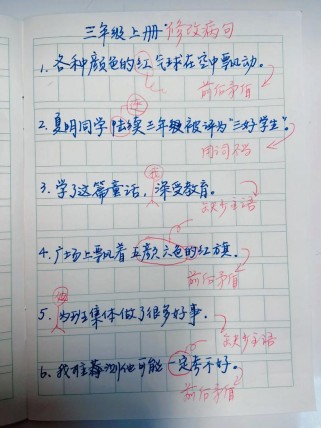 三年级上册 修改病句
1. 各种颜色的红气球在空中飘动。
前后矛盾
连
2. 夏明同学陆续三年级被评为“三好学生”。
用词不当
我
3. 学了这篇童话，深受教育。
缺少主语
4. 广场上飘着五颜六色的红旗。
前后矛盾
5. 为班集体做了很多好事。
缺少主语
6. 我推测他可能一定考不好。
前后矛盾